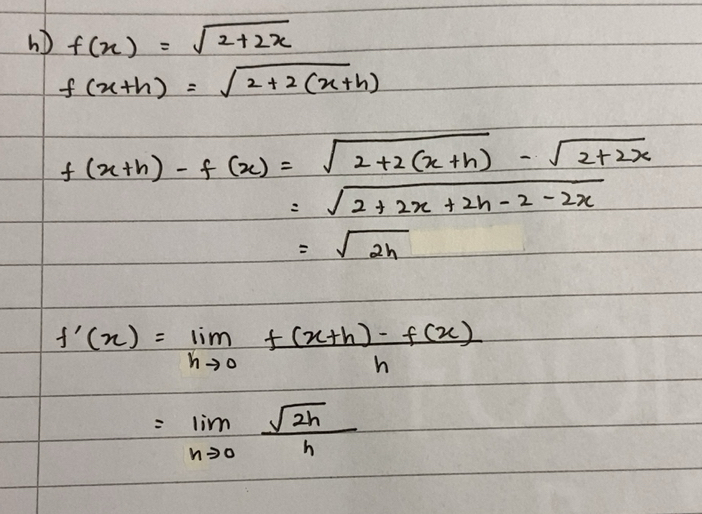 h) f(x) = √(2+2x)
f(x+h) = √(2+2(x+h))
f(x+h) - f(x) = √(2+2(x+h)) - √(2+2x)
= √(2+2x+2h-2-2x)
= √(2h)
f'(x) = lim h→0 (f(x+h) - f(x))/h
= lim h→0 √(2h)/h